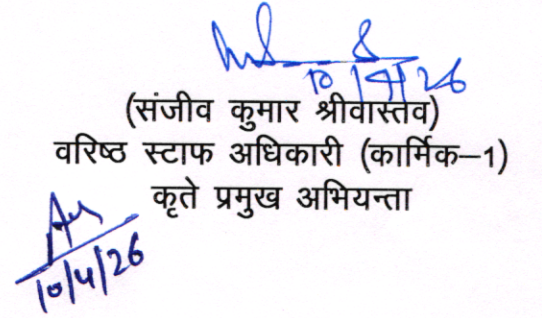 10/4/26
(संजीव कुमार श्रीवास्तव)
वरिष्ठ स्टाफ अधिकारी (कार्मिक–1)
कृते प्रमुख अभियन्ता
10/4/26